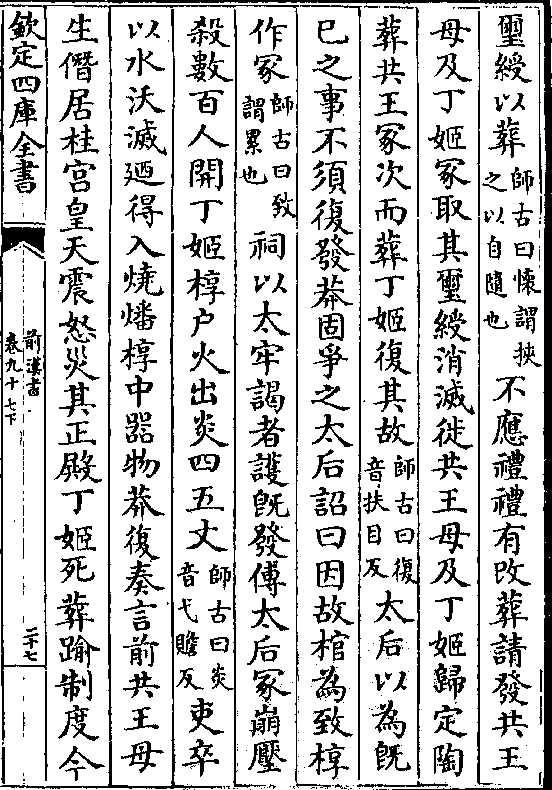 璽綬以葬師古曰懷謂挾之以自隨也不應禮禮有改葬請發共王
母及丁姬冢取其璽綬消滅徙共王母及丁姬歸定陶
葬共王冢次而葬丁姬復其故師古曰復音扶目反太后以為既
已之事不須復發莽固爭之太后詔曰因故棺為致椁
作冢師古曰致謂累也祠以太牢謁者護既發傅太后冢崩壓
殺數百人開丁姬椁户火出炎四五丈師古曰炎音弋贍反吏卒
以水沃滅廼得入燒燔椁中器物莽復奏言前共王母
生僭居桂宫皇天震怒災其正殿丁姬死葬踰制度今
欽定四庫全書
前漢書
卷九十七下
二十七